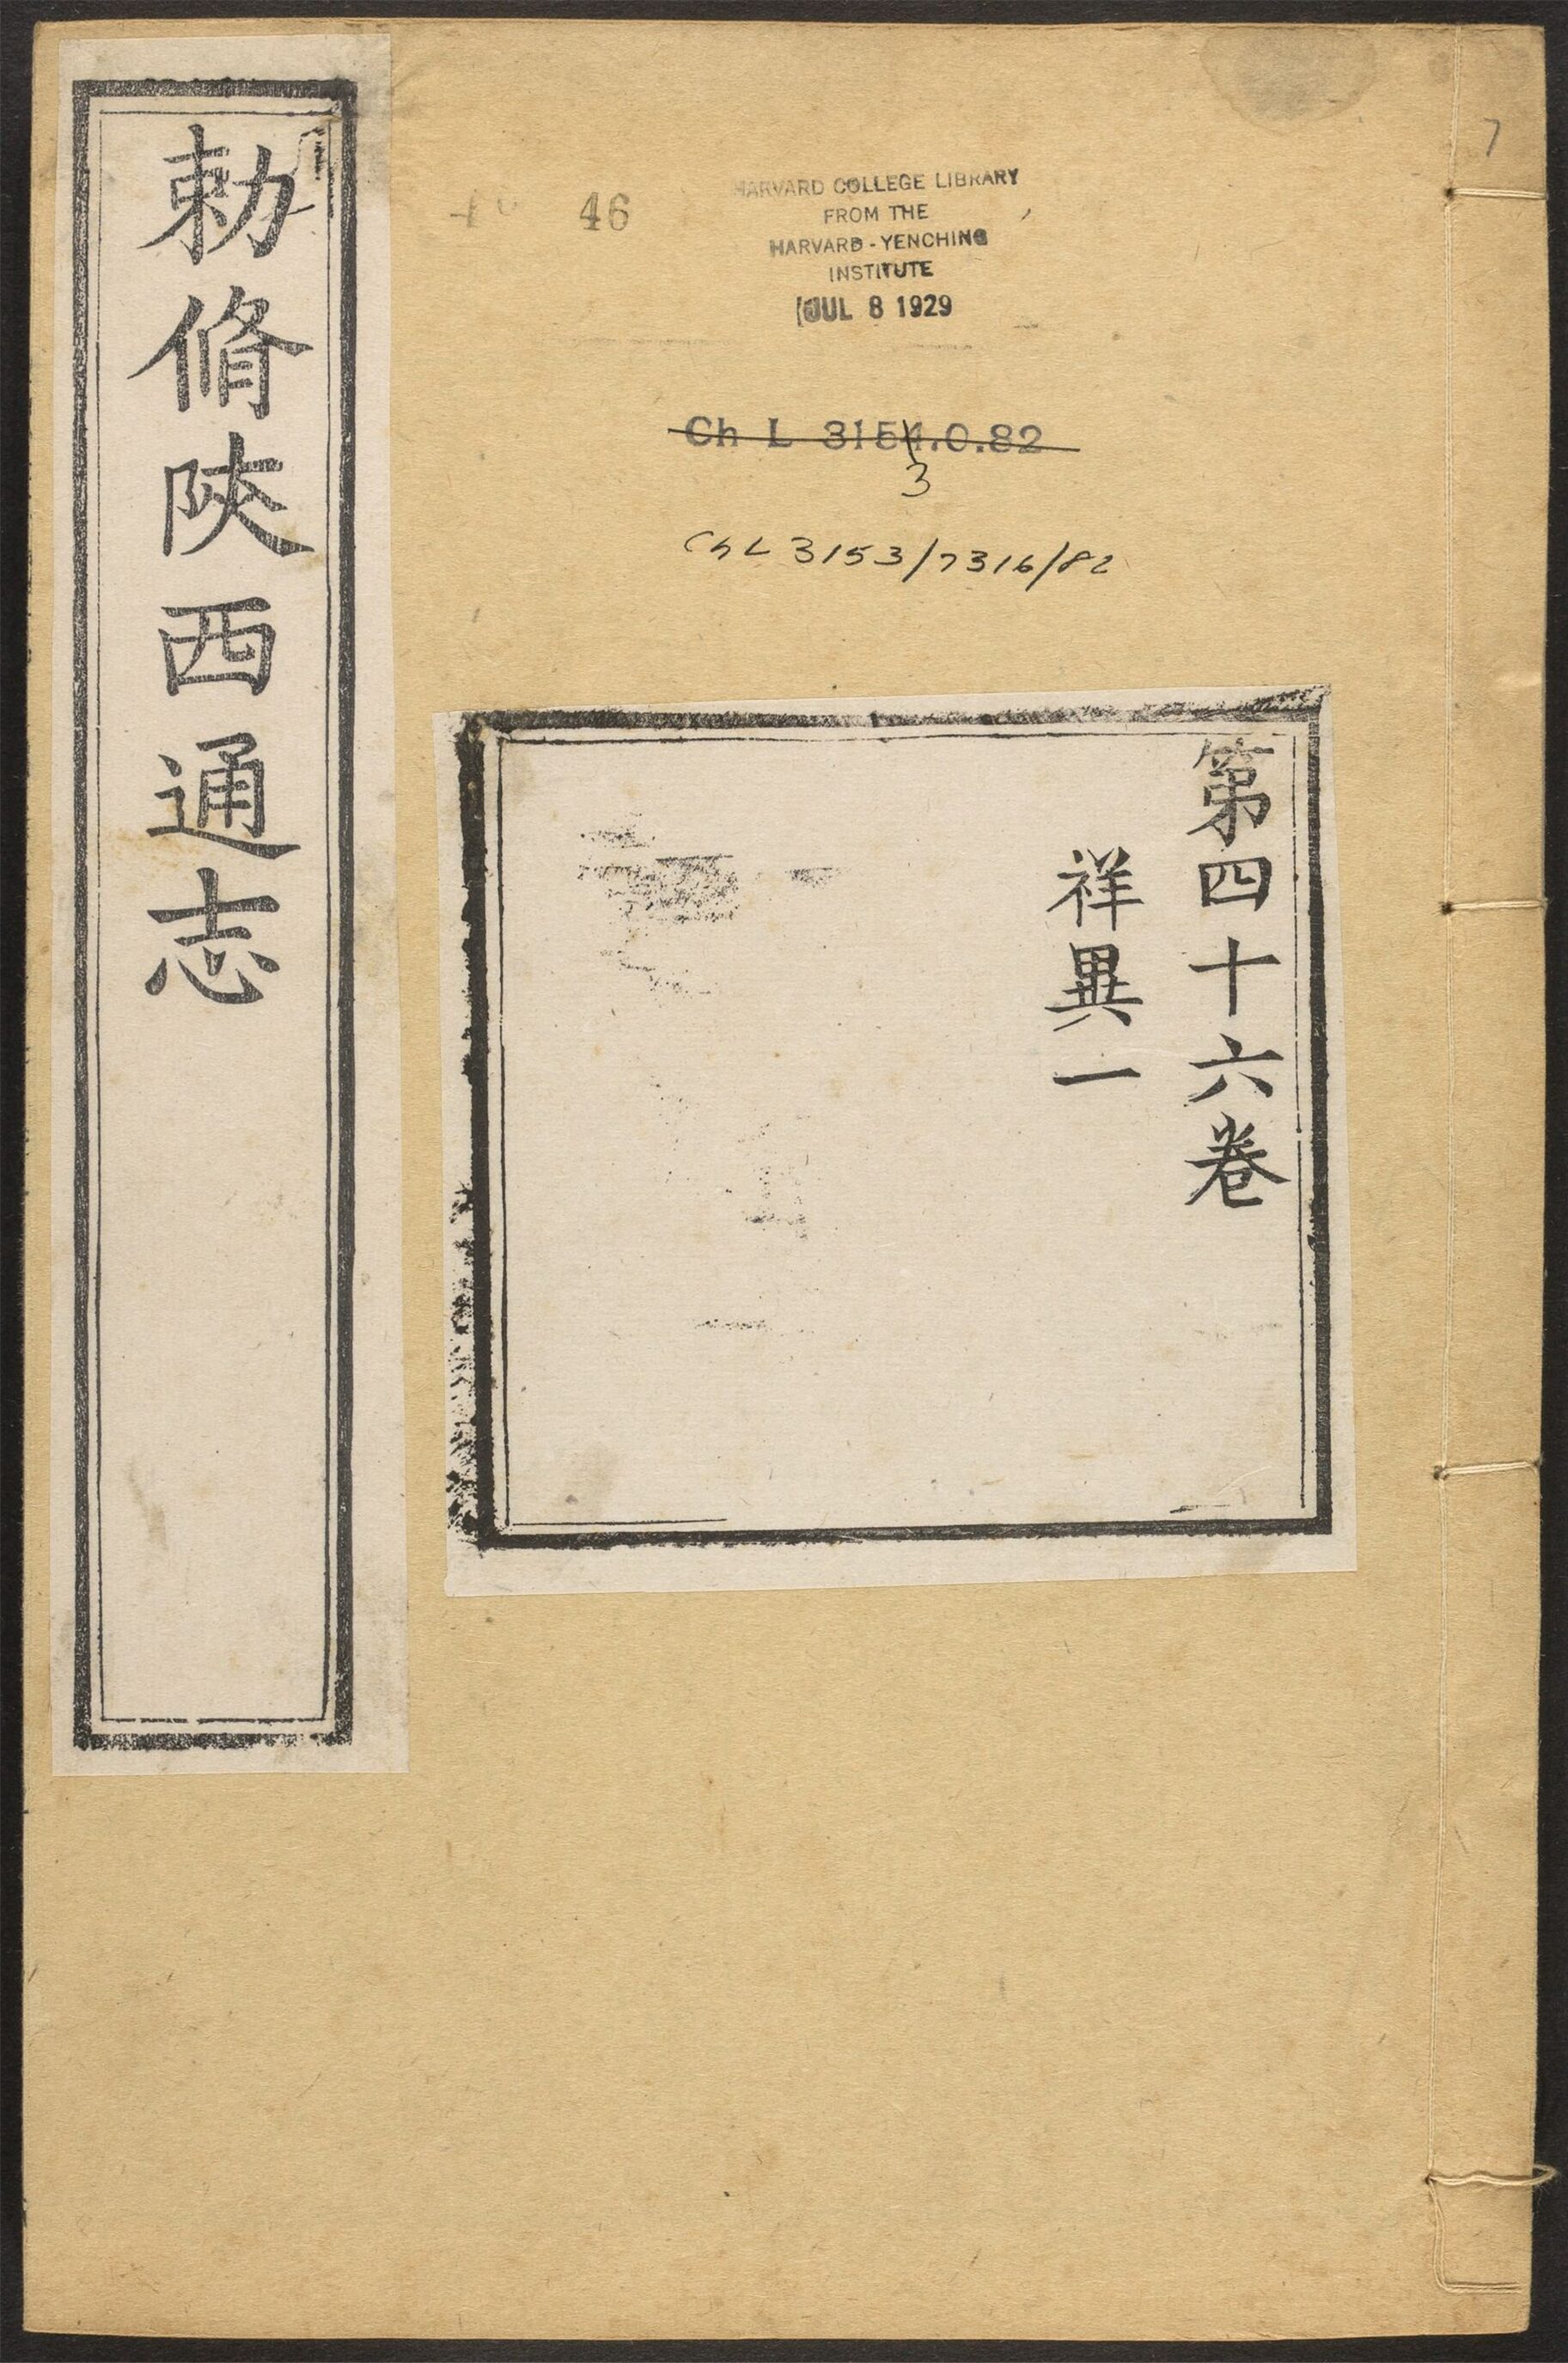 勅脩陝西通志
46
HARVARD COLLEGE LIBRARY
FROM THE
HARVARD-YENCHING
INSTITUTE
JUL 8 1929
Ch L 3154.0.82
3
Ch L 3153/7316/82
第四十六卷
祥異一
7